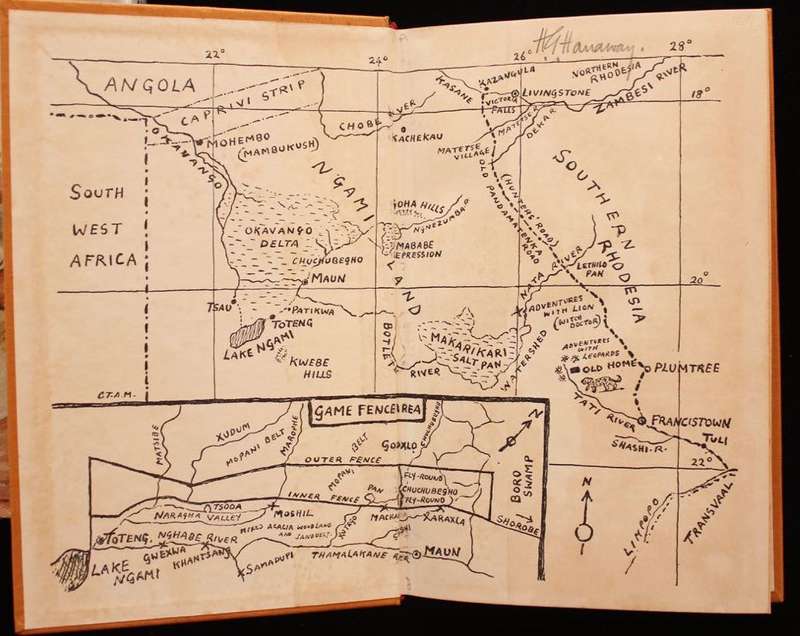 22°
24°
26°
H J Hanaway.
28°
ANGOLA
CAPRIVI STRIP
KASANE
KAZANGULA
VICTORIA
FALLS
LIVINGSTONE
NORTHERN
RHODESIA
ZAMBESI RIVER
18°
OKAVANGO
MOHEMBO
(MAMBUKUSH)
CHOBE RIVER
KACHEKAU
MATETSE R
DEKAR
MATETSE
VILLAGE
OLD PANDAMATENKA
ROAD
(HUNTERS' ROAD)
SOUTHERN
RHODESIA
SOUTH
WEST
AFRICA
NGAMI
LAND
OKAVANGO
DELTA
GOHA HILLS
MABABE
EPRESSION
CHUCHUBEGHO
MAUN
NATA RIVER
LETHILO
PAN
20°
TSAU
PATIKWA
TOTENG
LAKE NGAMI
KWEBE
HILLS
BOTLETLE
RIVER
MAKARIKARI
SALT PAN
WATERSHED
ADVENTURES
WITH LION
(WITCH
DOCTOR)
ADVENTURES
WITH
LEOPARDS
OLD HOME
PLUMTREE
TATI RIVER
FRANCISTOWN
TULI
SHASHI-R.
22°
N
LIMPOPO
TRANSVAAL
C.T.A.M.
GAME FENCE AREA
MATSIBE
XUDUM
MOPANI BELT
MAROPHE
MOPANI
BELT
GODXLO
CHUCHUBEGHO
N
OUTER FENCE
INNER FENCE
PAN
FLY-ROUND
CHUCHUBEGHO
FLY-ROUND
BORO
SWAMP
SHOROBE
TSODA
NARAGHA VALLEY
MOSHIL
MIXED ACACIA WOODLAND
AND SANDBELT
XARAXLA
TOTENG.
NGHABE RIVER
GWEXWA
KHANTSANG
SAMADUPI
THAMALAKANE
MAUN
LAKE
NGAMI